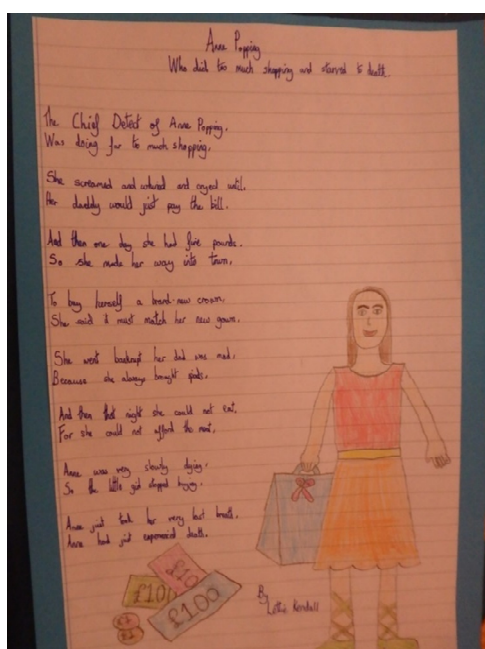 Anne Popping
Who did too much shopping and starved to death.
The Chief Defect of Anne Popping,
Was doing far to much shopping,
She screamed and and until.
Her daddy would just pay the bill.
And then one day she had five pounds.
So she made her way into town,
To buy herself a brand-new crown,
She said it must match her new gown,
She went bankrupt her dad was mad,
Because she always bought
And then that night she could not eat,
For she could not afford the meat,
Anne was very slowly dying,
So the little girl stopped buying.
Anne just took her very last breath,
Anne had just experienced death.
£10
£100
£100
£2
£2
By
Kendall